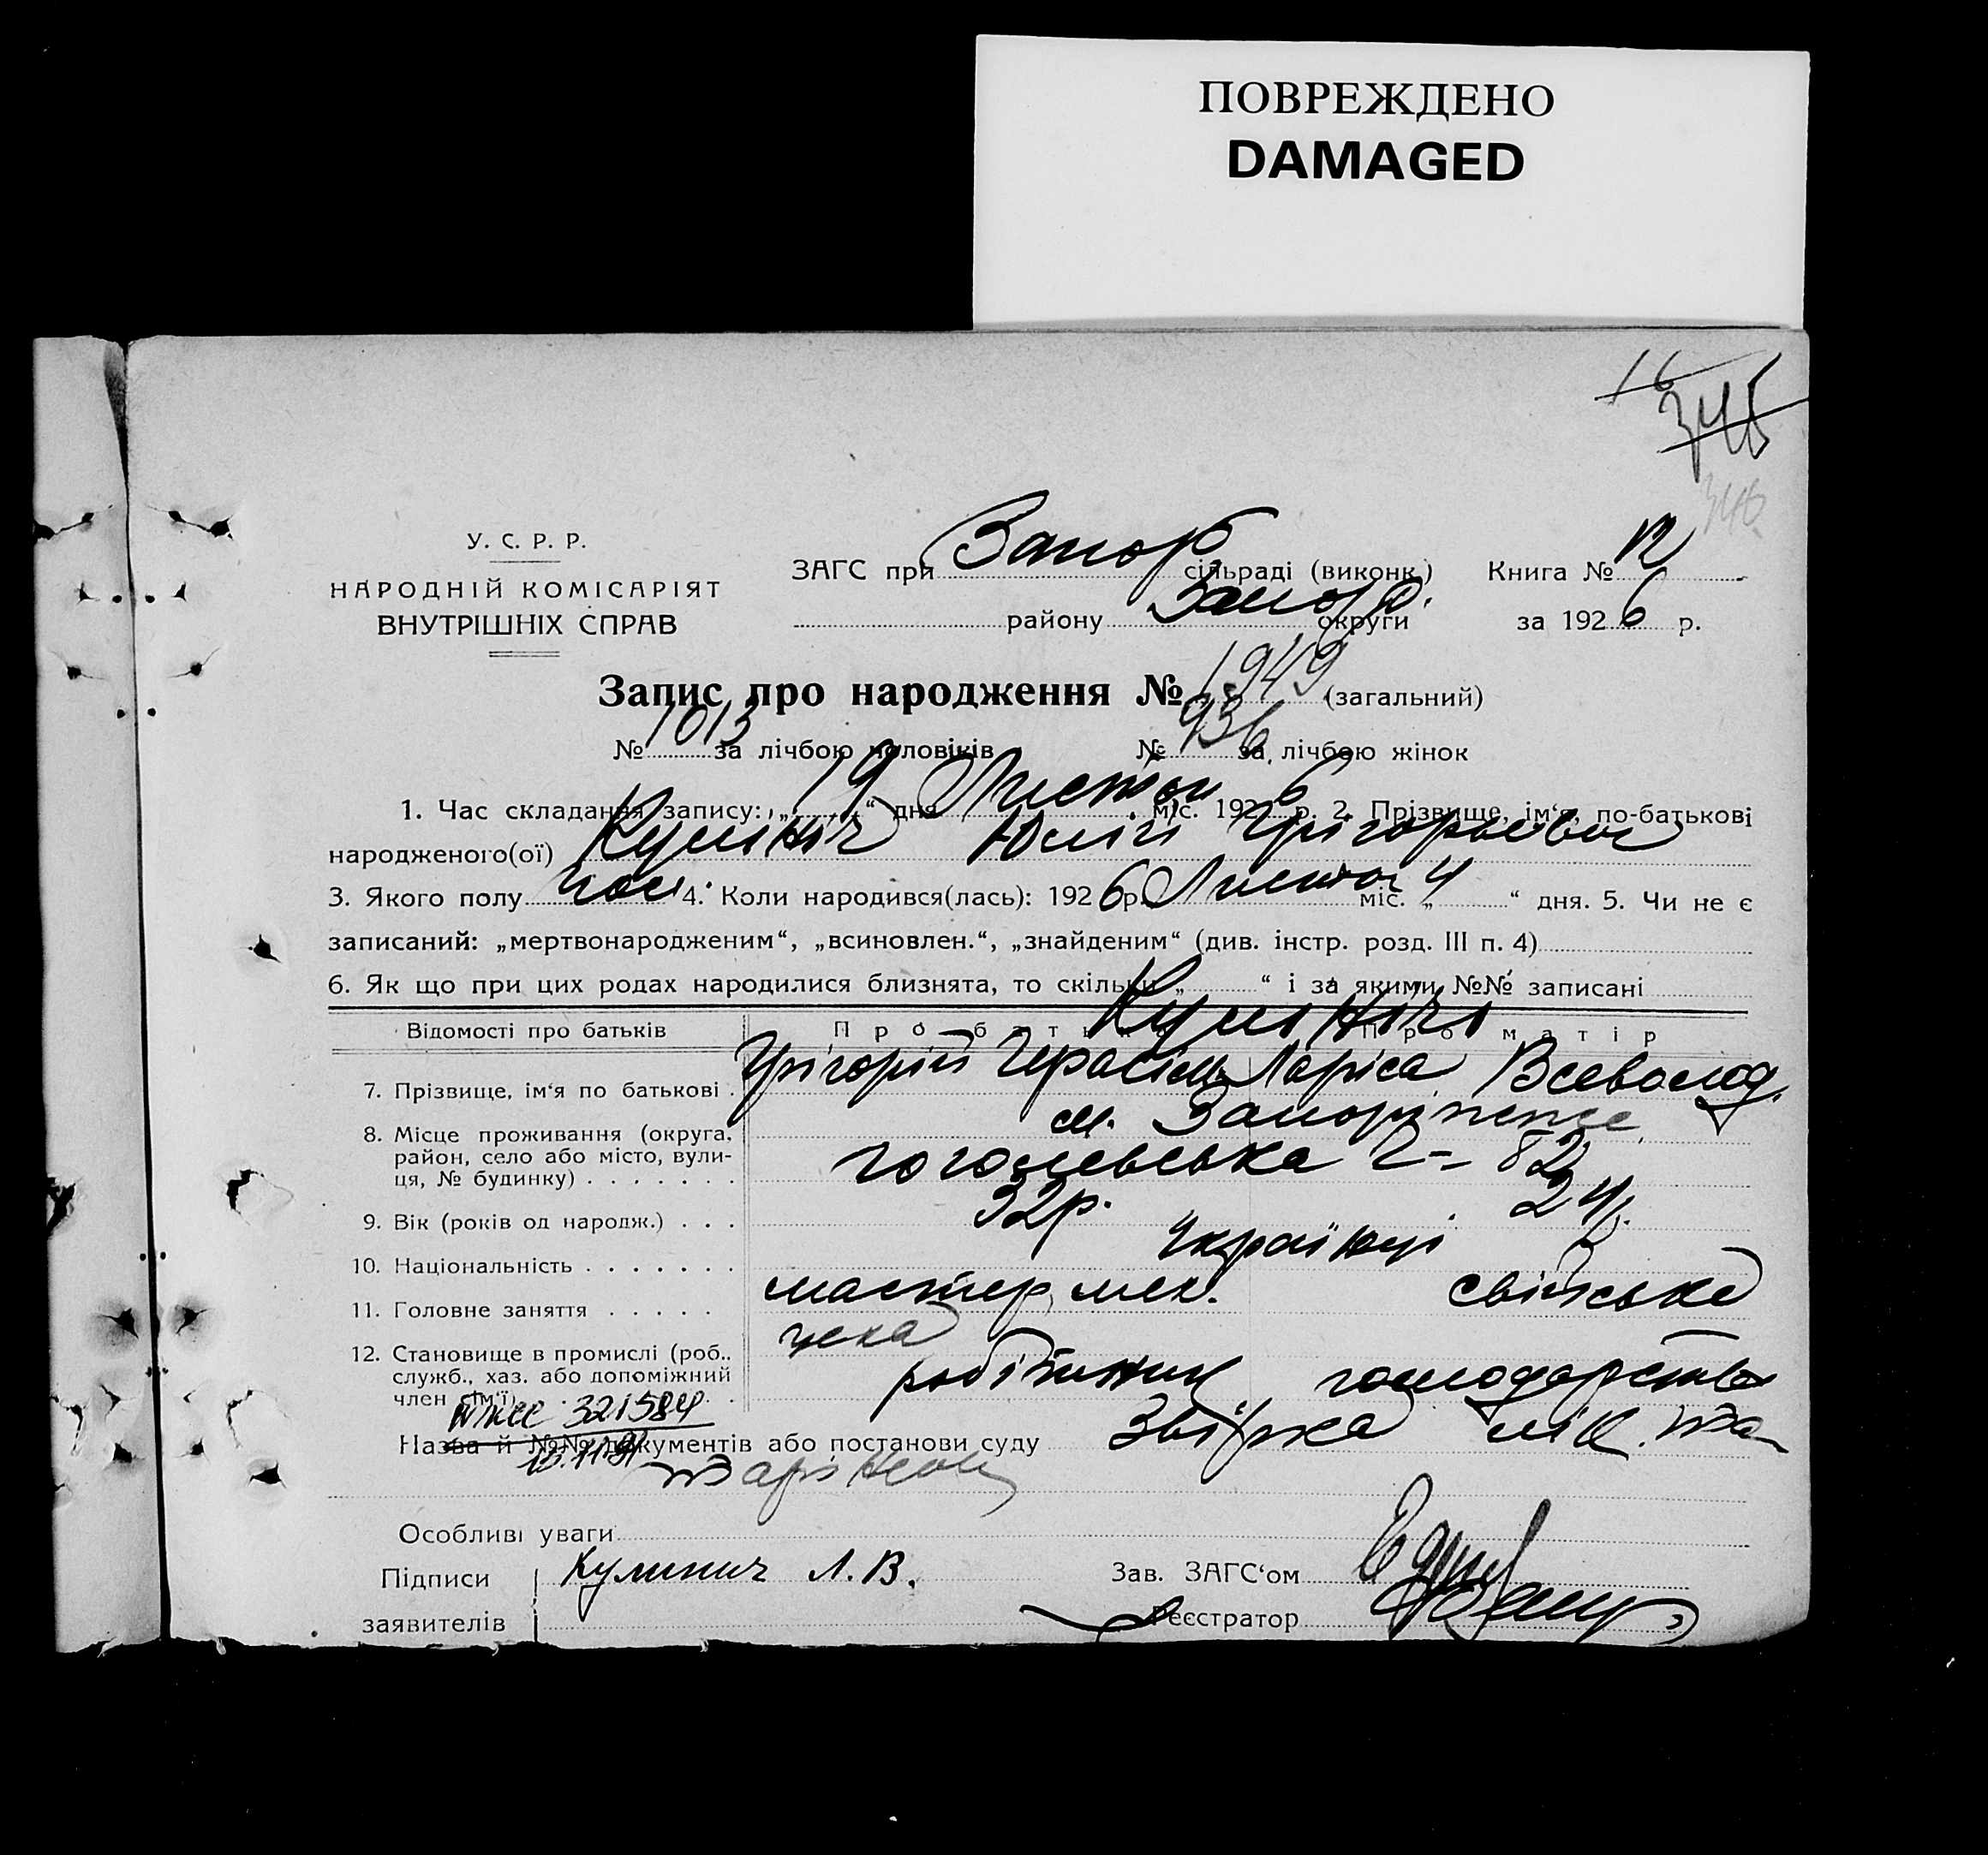 ПОВРЕЖДЕНО
DAMAGED
16
345
346
У. С. Р. Р.
НАРОДНІЙ КОМІСАРІЯТ
ВНУТРІШНІХ СПРАВ
ЗАГС при Запор сільраді (виконк.) Книга № 12
району Запор. округи за 1926 р.
Запис про народження № 1949 (загальний)
№ 1013 за лічбою чоловіків № 936 за лічбою жінок
1. Час складання запису: „19“ дня Листоп міс. 1926 р. 2. Прізвище, ім‘я, по-батькові
народженого(ої) Кулініч Юлій Грігорьевич
3. Якого полу чол. 4. Коли народився(лась): 1926 р. Листоп міс. „4“ дня. 5. Чи не є
записаний: „мертвонародженим“, „всиновлен.“, „знайденим“ (див. інстр. розд. III п. 4)
6. Як що при цих родах народилися близнята, то скільки „ “ і за якими №№ записані
Відомості про батьків Про батька Про матір
Кулінічі
7. Прізвище, ім‘я по батькові . Грігорій Герасім. Ларіса Всеволод.
8. Місце проживання (округа, район, село або місто, вулиця, № будинку) . . . . . . . м. Запоріжже
гоголевська 82
9. Вік (років од народж.) . . . 32р. 24р.
10. Національність . . . . . . . Українці
11. Головне заняття . . . . . мастер мех. свійське
цеха
12. Становище в промислі (роб., служб., хаз. або допоміжний член сім‘ї) робітник господарство
321584
Назва й №№ документів або постанови суду Звірка лік. та
Особливі уваги
Підписи Кулинич Л. В. Зав. ЗАГС‘ом
заявителів Реєстратор